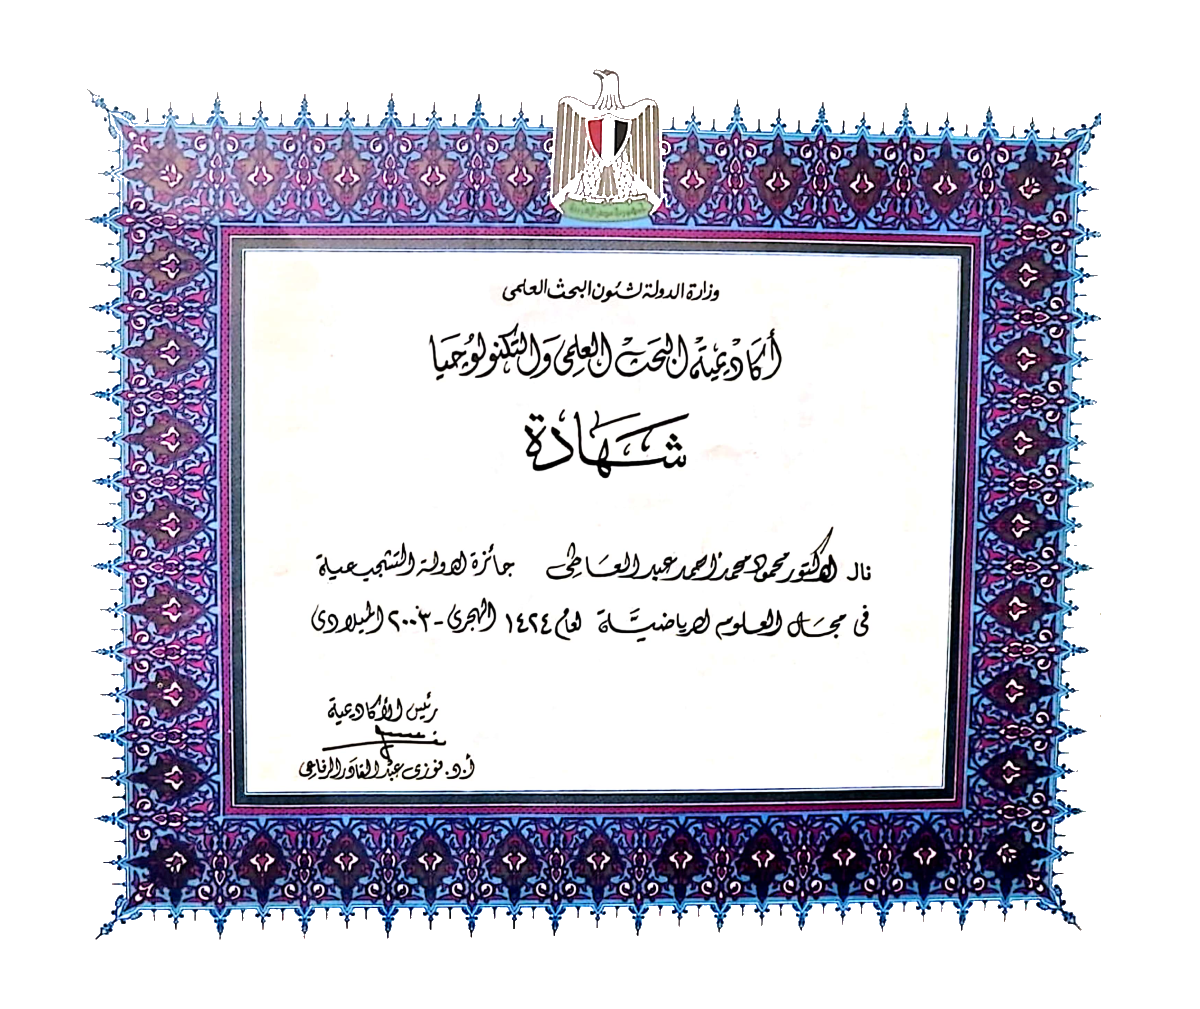 جمهورية مصر العربية
وزارة الدولة لشئون البحث العلمى
أكاديمية البحث العلمى والتكنولوجيا
شهادة
نال الدكتور محمود محمد أحمد عبد العاطى جائزة الدولة التشجيعية
فى مجال العلوم الرياضية لعام ١٤٢٤ الهجرى - ٢٠٠٣ الميلادى
رئيس الأكاديمية
أ.د. فوزى عبد القادر الرفاعى